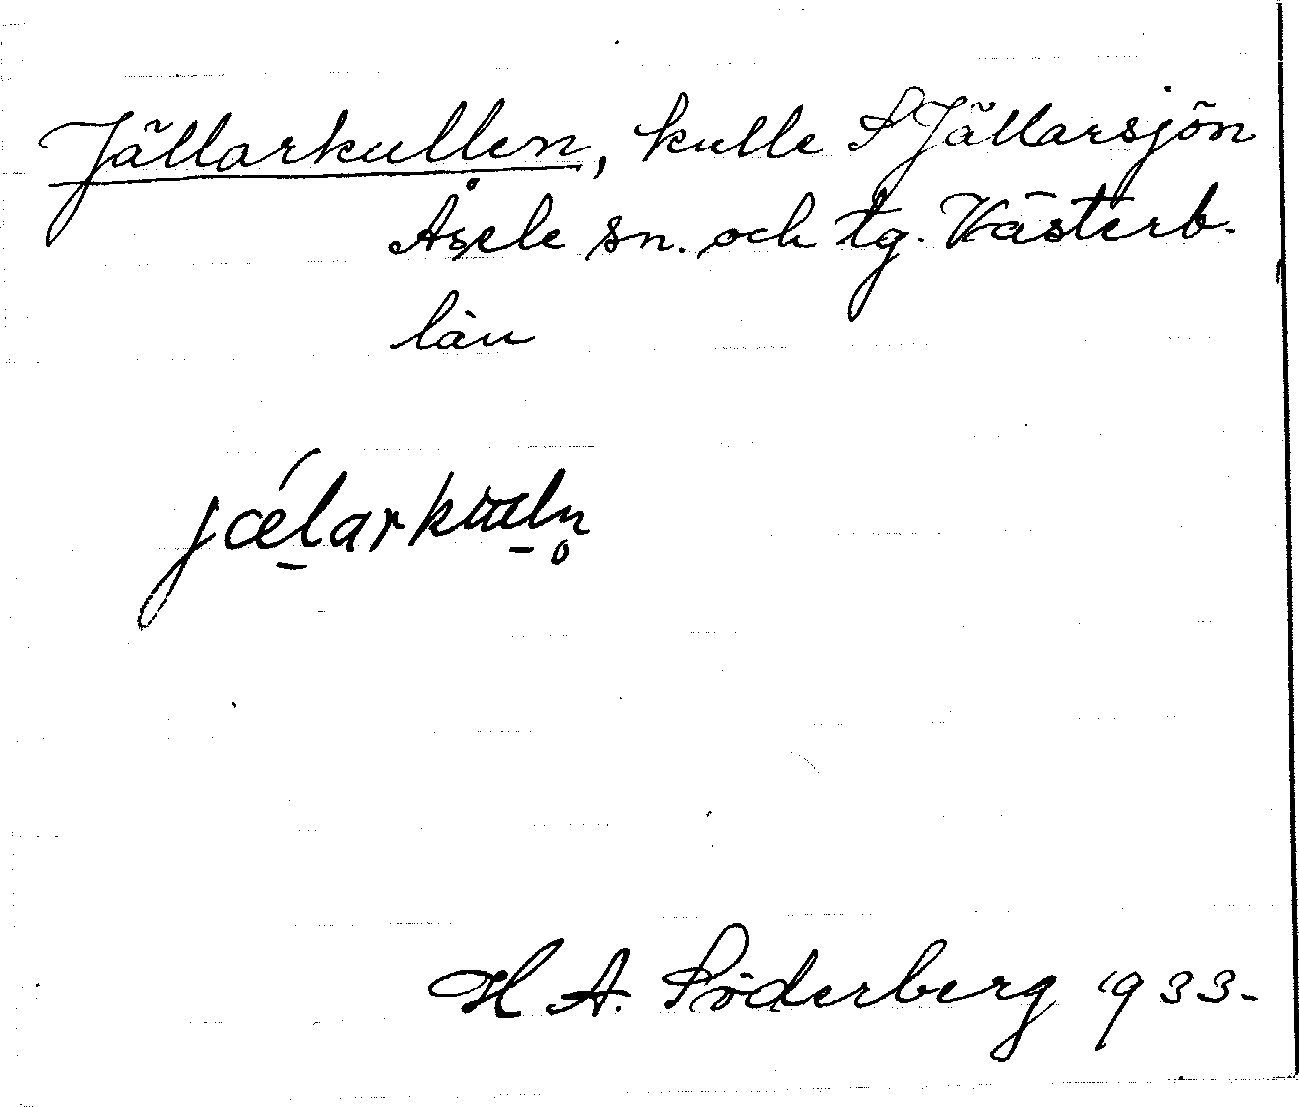 Jällarkullen, kulle S Jällarsjön
Åsele sn. och tg. Västerb.
län
jǽl̠arkuul̠n̥
H A. Söderberg 1933.